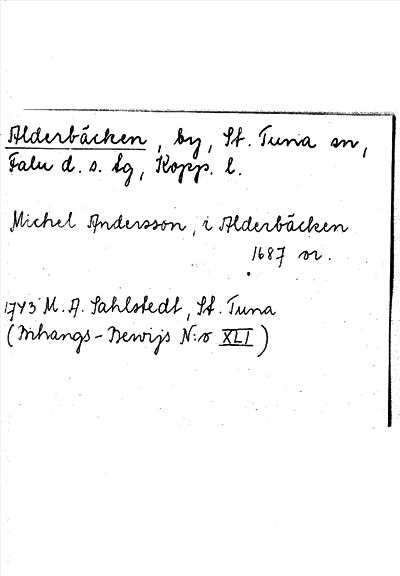 Alderbäcken, by, St. Tuna sn,
Falu d. s. lg, Kopp. l.
Michel Andersson, i Alderbäcken
1687 or.
1743 M. A. Sahlstedt, St. Tuna
(Bihangs-Bewijs N:o XLI)